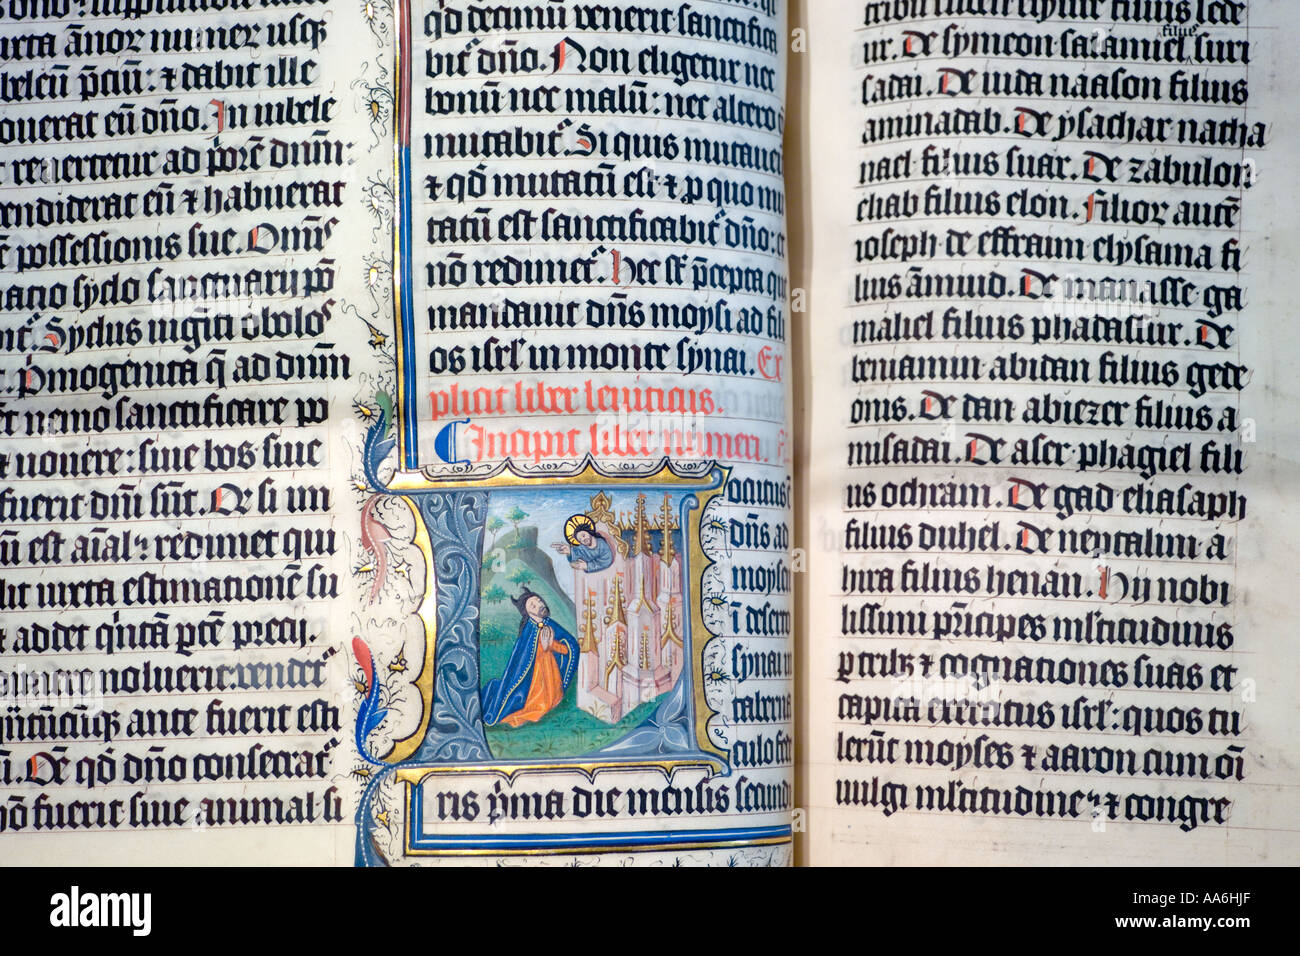 iuxta ãnoꝝ numeꝝ usqꝫ
p̃ciũ: ⁊ dabit ille
eũ dño. In iubele
reuertetur ad p̃orẽ dnm̃:
eũ ⁊ habuerat
possessionis sue. Om̃is
siclo sanctuarij põ
Syclus uigĩti obolos
P̃mogenita q̃ ad dnm̃
nemo sanctificare po
uouere: siue bos siue
fuerit dñi sũt. Qr si im
est aĩal: redimet qui
iuxta estimationẽ su
⁊ addet quĩtã ptẽ precij.
noluerit: uendet᷑
ante fuerit esti
De qd̃ dño consecrat᷑
fuerit siue animal si
qd̃ decimũ uenerit sanctifica
bit᷑ dño. Non eligetur nec
bonũ nec malũ: nec altero
mutabit᷑. Si quis mutaue
⁊ qd̃ mutatũ est ⁊ p quo mu
tatũ est sanctificabit᷑ dño: ⁊
nõ redimet᷑. Hec st̃ p̃cepta que
mandauit dñs moysi ad fili
os isrl̃ in monte synai. Ex
plicit liber leuiticus.
Incipit liber numeri.
ocutus ẽ
dñs ad
moysẽ
ĩ deserto
synai in
taberna
culo fede
ris p̃ma die mensis secund
filius sede
ur. De symeon salamiel filius suri
sadai. De iuda naason filius
aminadab. De ysachar natha
nael filius suar. De zabulon
eliab filius elon. Filioꝝ autẽ
ioseph de effraim elysama fi
lius ãmiud. De manasse ga
maliel filius phadassur. De
beniamin abidan filius gede
onis. De dan abiezer filius a
misadai. De aser phagiel fili
us ochram. De gad eliasaph
filius duhel. De neptalim a
hira filius henan. Hij nobi
lissimi p̃ncipes ml̃titudinis
p tribꝫ ⁊ cognationes suas et
capita exercitus isrl̃: quos tu
lerũt moyses ⁊ aaron cum om̃i
uulgi ml̃titudine: ⁊ congre
alamy
Image ID: AA6HJF
www.alamy.com